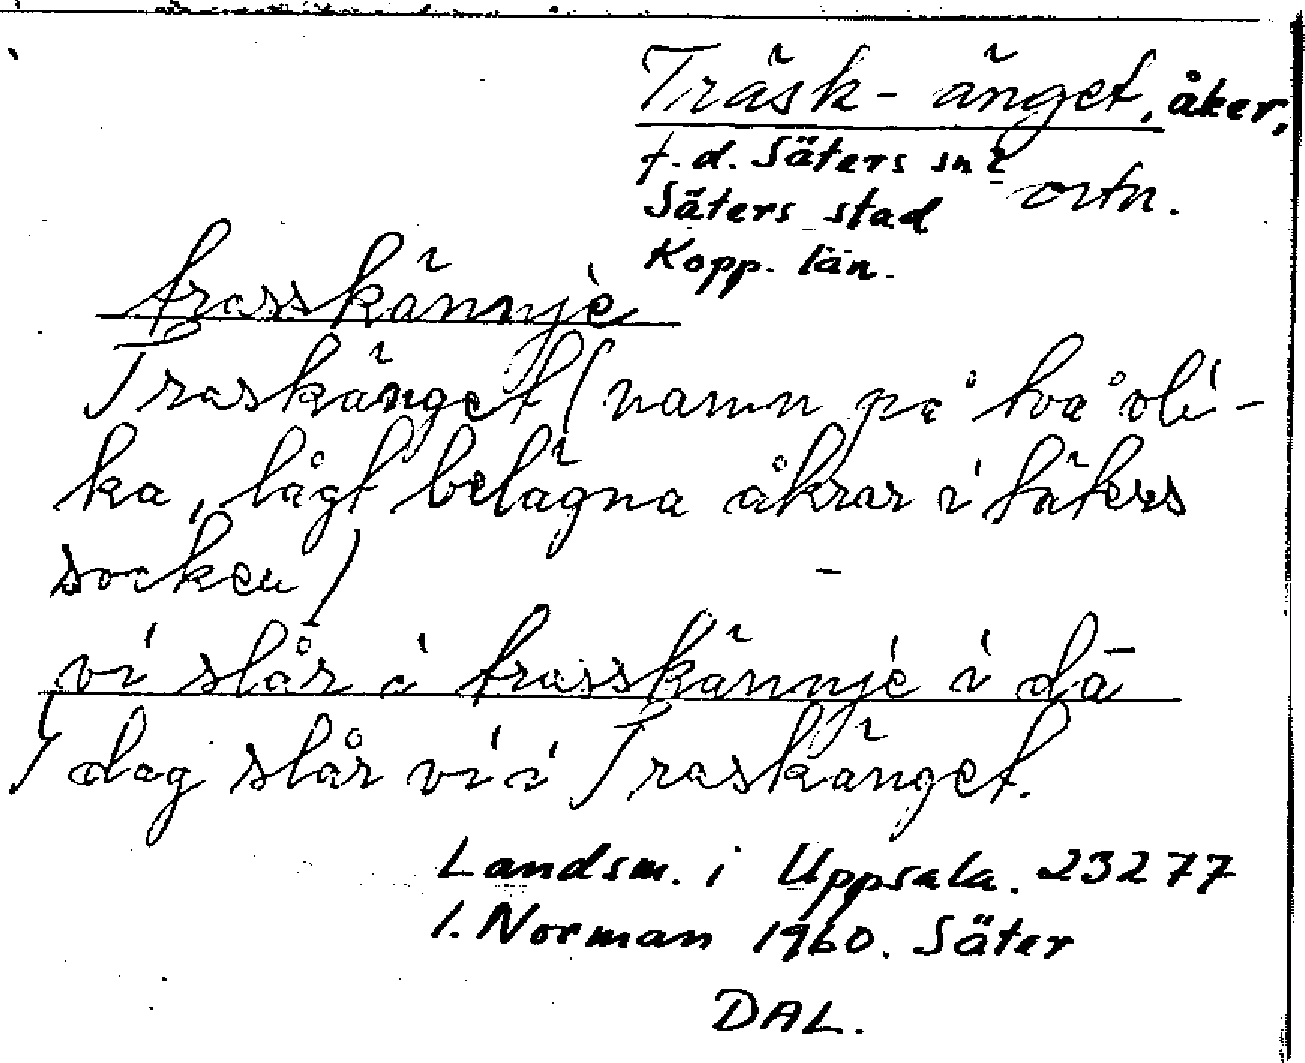 Träsk-änget, åker,
f.d. Säters sn i
Säters stad ortn.
Kopp. län.
trasskännje
Traskänget (namn på två oli-
ka, lågt belägna åkrar i Säters
socken)
vi slår i trasskännje i dā
I dag slår vi i Traskänget.
Landsm. i Uppsala. 23277
I. Norman 1960. Säter
DAL.